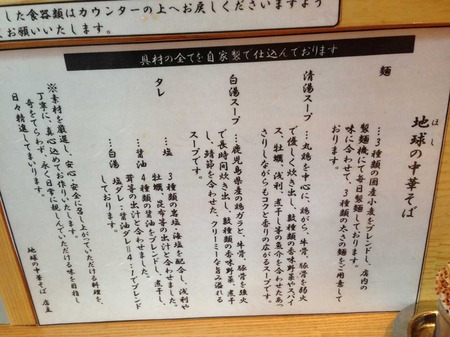 した食器類はカウンターの上へお戻しくださいますよう
お願いいたします。
具材の全てを自家製で仕込んでおります
ほし
地球の中華そば
麺
…3種類の国産小麦をブレンドし、店内の
製麺機にて毎日製麺しております。
味に合わせて、3種類の太さの麺をご用意して
おります。
清湯スープ
…丸鶏を中心に、鶏がら、牛骨、豚骨を弱火
で優しく炊き出し、数種類の香味野菜やスパイ
ス、牡蠣、浅利、煮干し等の魚介を合わせたあっ
さりしながらもコクと香りの広がるスープです。
白湯スープ
…鹿児島県産の鶏ガラと、牛骨、豚骨を強火
で長時間炊き出し、数種類の香味野菜、煮干
し、鯖節を合わせた、クリーミーな旨み溢れる
スープです。
タレ
…塩 3種類の岩塩、海塩を配合し、浅利や
牡蠣、昆布等の出汁と合わせました。
…醤油 4種類の醤油をブレンドし、煮干し、
茸等の出汁と合わせました。
…白湯 塩ダレ:醤油ダレ=4:1でブレンド
※素材を厳選し、安心・安全な召し上がっていただける料理を、
丁寧に、真心込めてお作りいたします。
奇をてらわず、永く日常に親しんでいただける味を目指し
日々精進してまいります。
地球の中華そば 店主